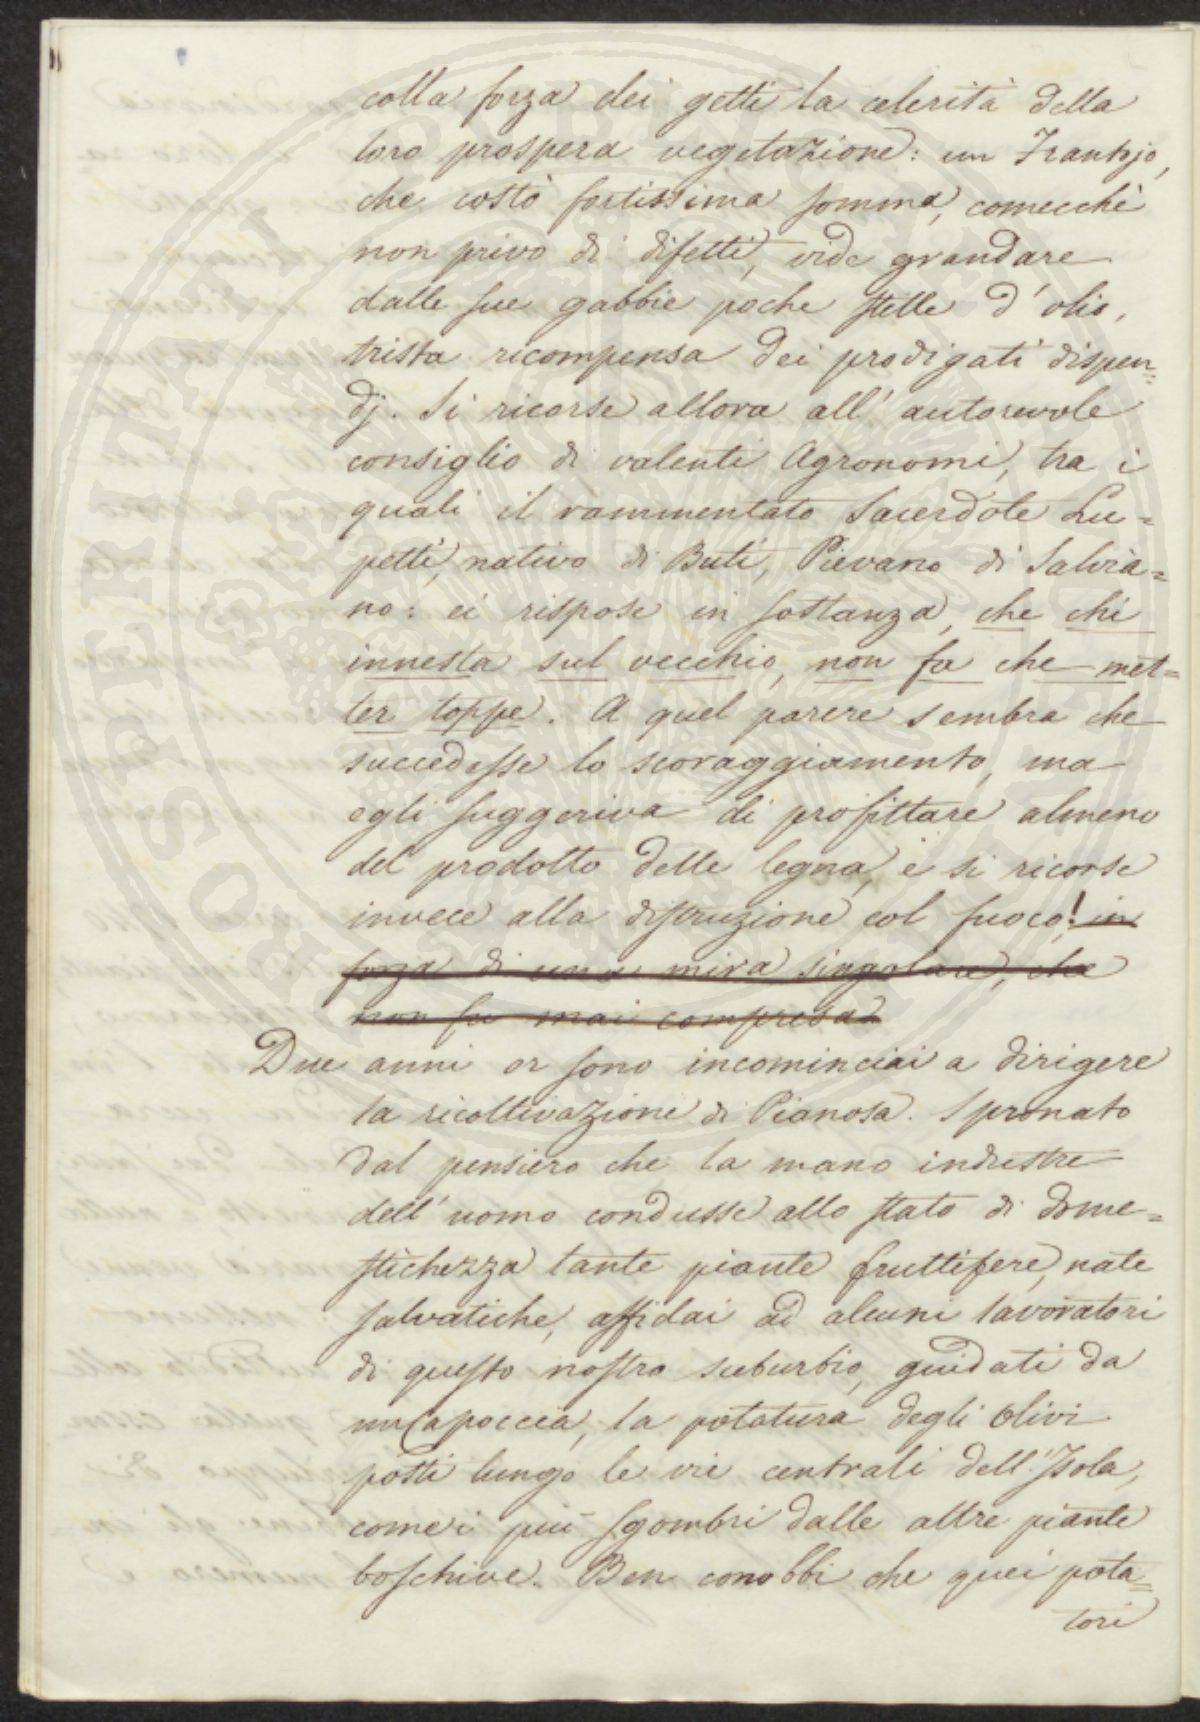 colla forza dei getti la celerità della
loro prospera vegetazione: un Frantojo,
che costò fortissima somma, comecchè
non privo di difetti, vide grandare
dalle sue gabbie poche stille d'olio,
trista ricompensa dei prodigati dispen=
dj. Si ricorse allora all'autorevole
consiglio di valenti Agronomi, tra i
quali il rammentato Sacerdote Lu=
petti, nativo di Buti, Pievano di Salvia=
no: ei rispose in sostanza, che chi
innesta sul vecchio, non fa che met=
ter toppe. A quel parere sembra che
succedesse lo scoraggiamento, ma
egli suggeriva di profittare almeno
del prodotto delle legna, e si ricorse
invece alla distruzione col fuoco! in
forza di una mira singolare, che
non fu mai compresa
Due anni or sono incominciai a dirigere
la ricoltivazione di Pianosa. Spronato
dal pensiero che la mano industre
dell'uomo condusse allo stato di dome=
stichezza tante piante fruttifere, nate
salvatiche, affidai ad alcuni lavoratori
di questo nostro suburbio, guidati da
un Capoccia, la potatura degli Olivi
posti lungo le vie centrali dell'Isola,
come i più sgombri dalle altre piante
boschive. Ben conobbi che quei pota=
tori
PROSPERITATI PUBLICAE AUGENDAE